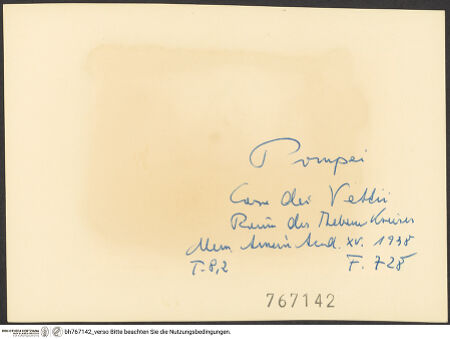 Pompei
Casa dei Vettii
Raum des Thebens Kreises
Mem. Americ. Acad. XV. 1938
T. 8,2 F. 728
767142
bh767142_verso Bitte beachten Sie die Nutzungsbedingungen.